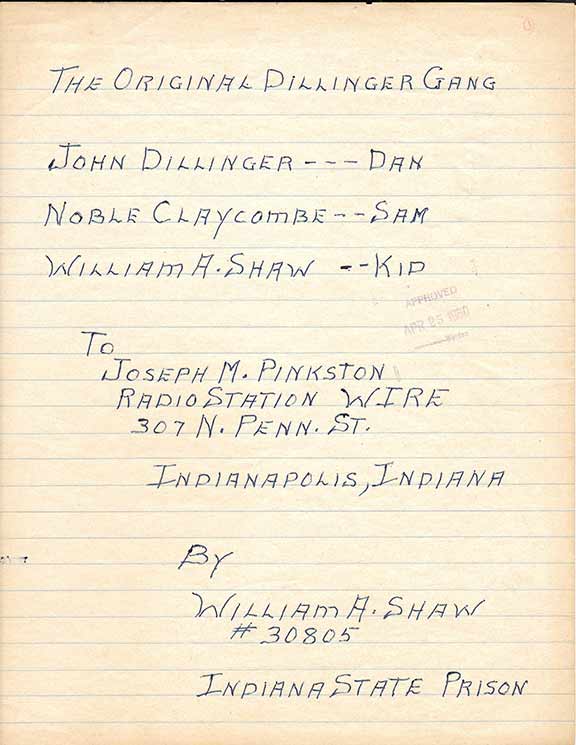 THE ORIGINAL DILLINGER GANG
JOHN DILLINGER --- DAN
NOBLE CLAYCOMBE -- SAM
WILLIAM A. SHAW -- KID
APPROVED
APR 25 1960
TO
JOSEPH M. PINKSTON
RADIO STATION WIRE
307 N. PENN. ST.
INDIANAPOLIS, INDIANA
By
WILLIAM A. SHAW
# 30805
INDIANA STATE PRISON